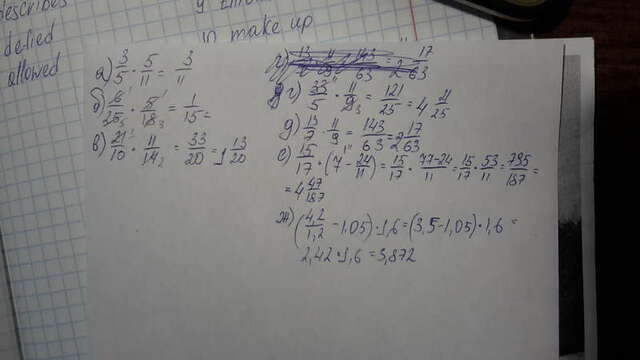 describes
delied
allowed
in make up
а) 3/5 · 5/11 = 3/11
б) 6/25 · 5/18 = 1/15 =
в) 21/10 · 11/14 = 33/20 = 1 13/20
г) 33/5 · 11/9 = 121/25 = 4 11/25
д) 13/7 · 11/9 = 143/63 = 2 17/63
е) 15/17 · (7 - 24/11) = 15/17 · 77-24/11 = 15/17 · 53/11 = 795/187 =
= 4 47/187
ж) (4,2/1,2 - 1,05) · 1,6 = (3,5 - 1,05) · 1,6 =
2,42 · 1,6 = 3,872